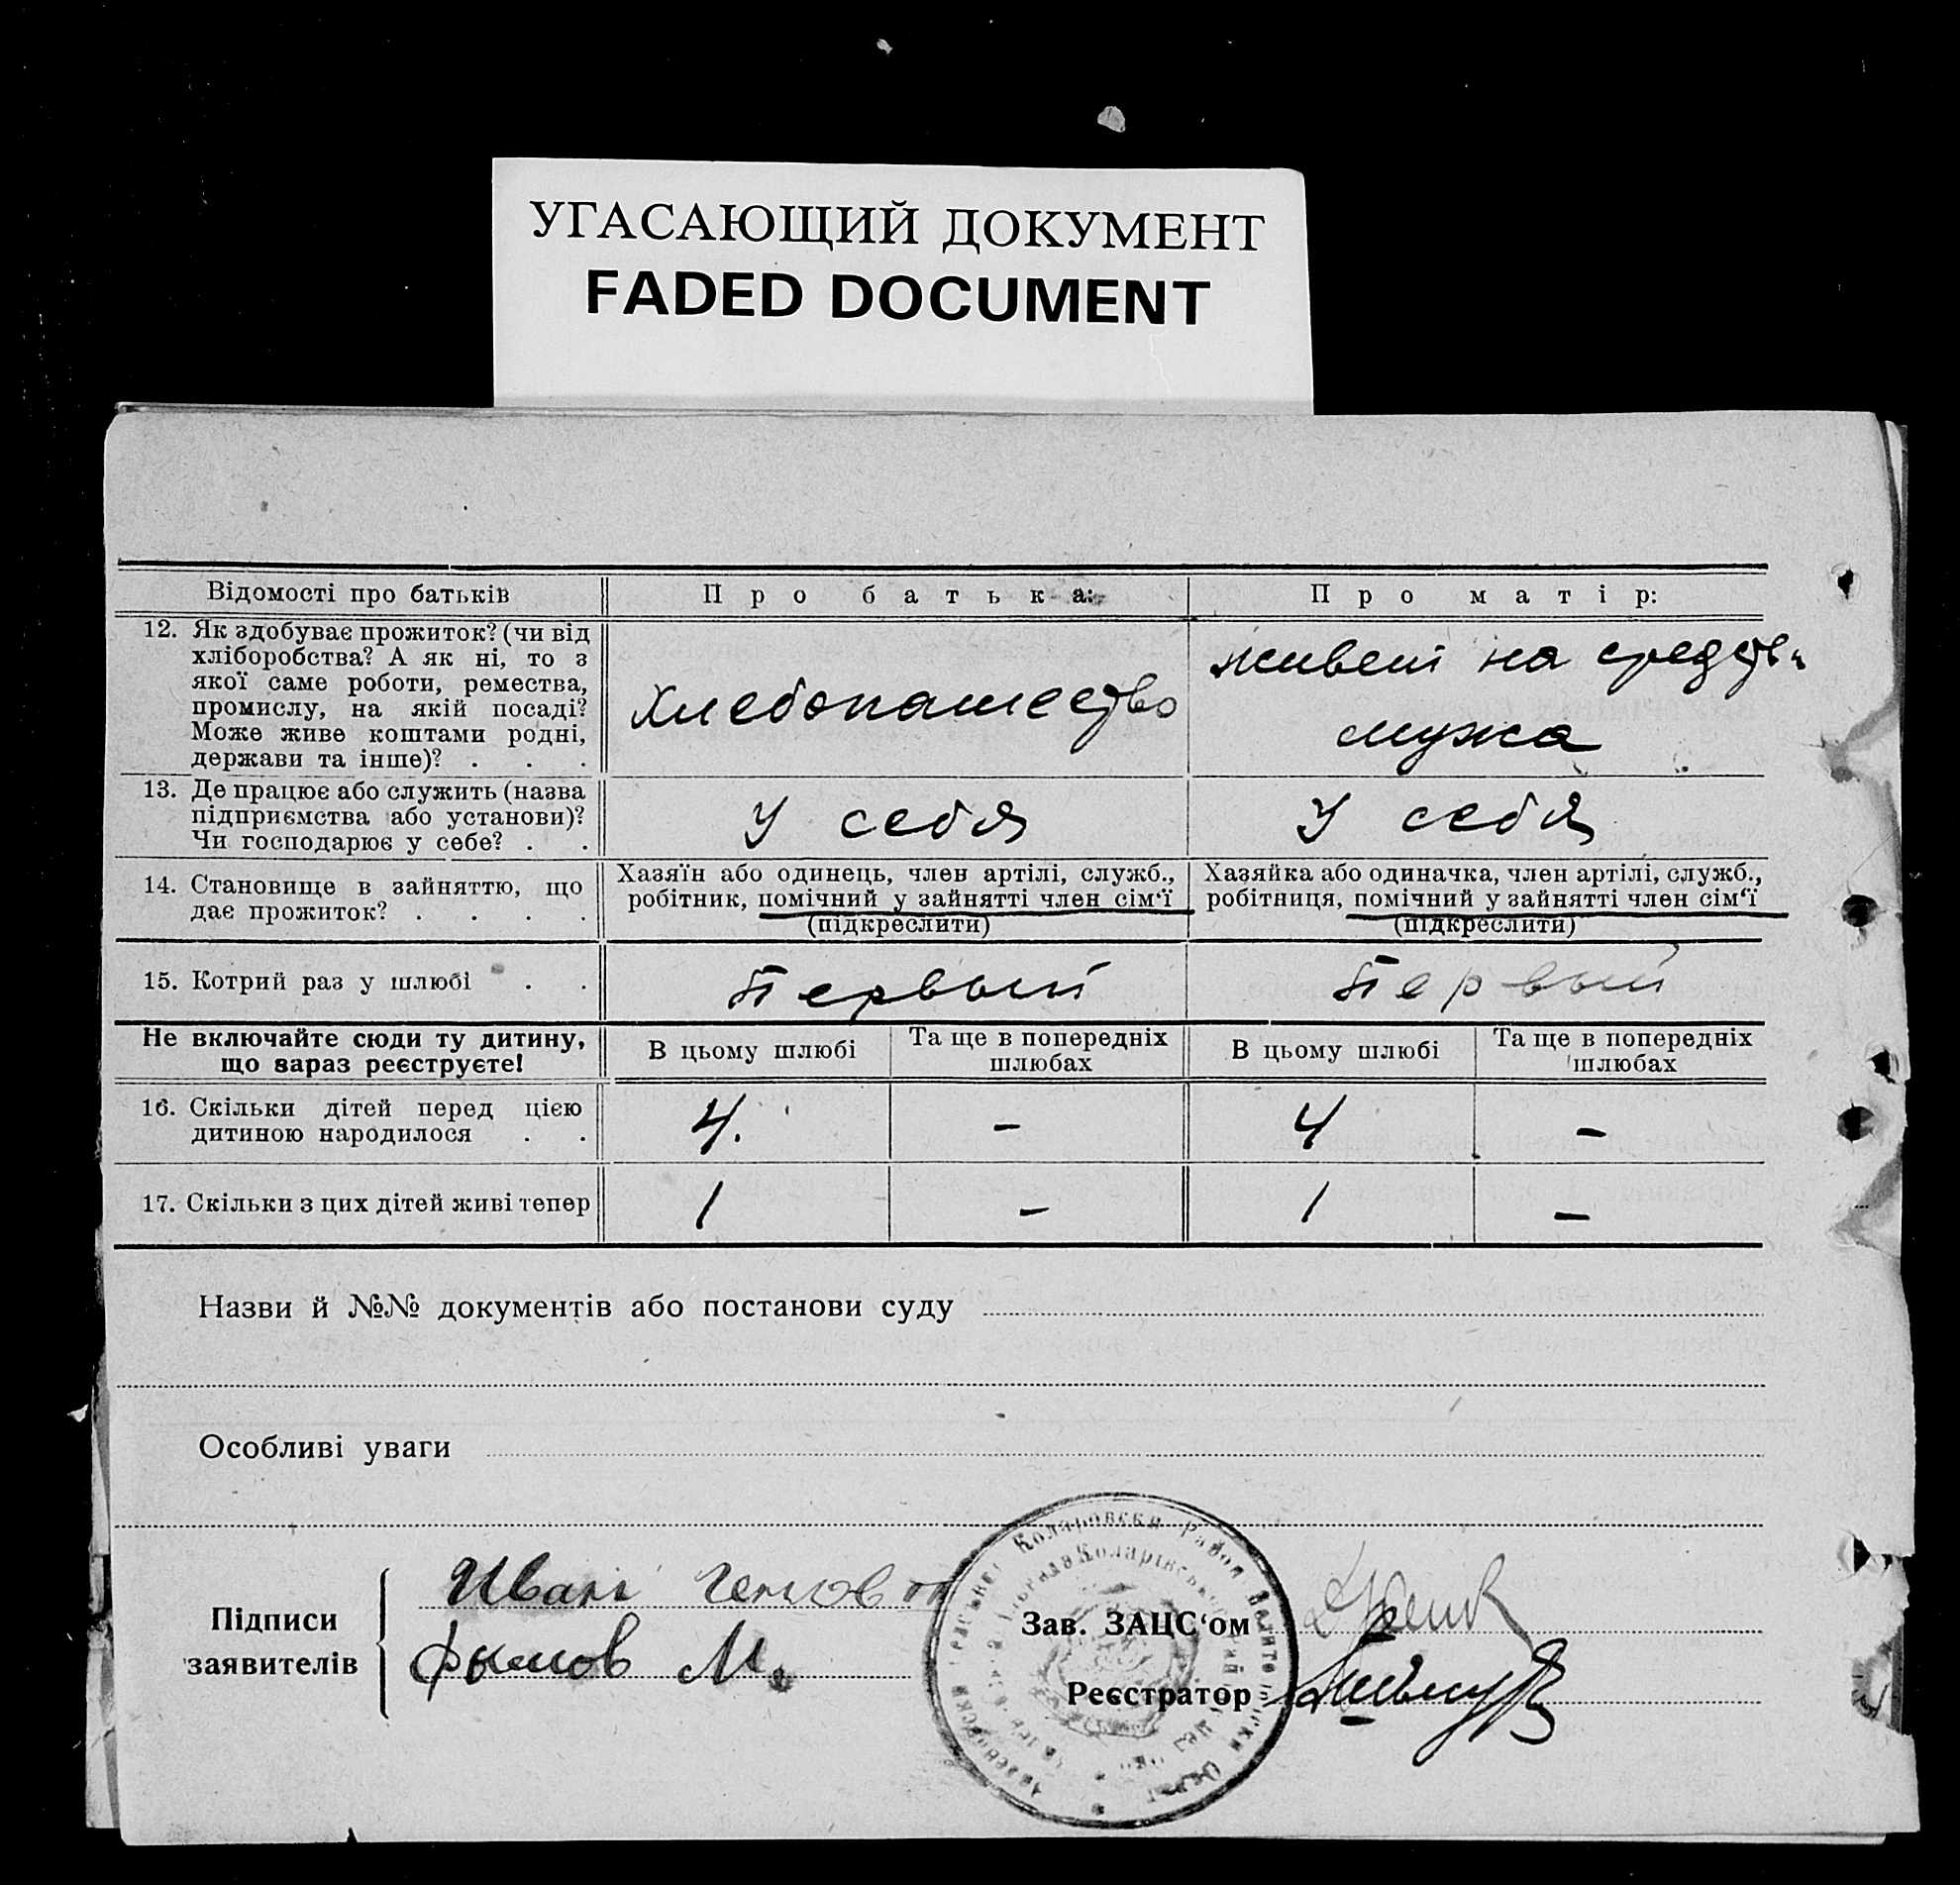 УГАСАЮЩИЙ ДОКУМЕНТ
FADED DOCUMENT
Відомості про батьків
Про батька:
Про матір:
12. Як здобуває прожиток? (чи від
хліборобства? А як ні, то з
якої саме роботи, ремества,
промислу, на якій посаді?
Може живе коштами родні,
держави та інше)? . . .
Хлебопашество
живет на средств
мужа
13. Де працює або служить (назва
підприємства або установи)?
Чи господарює у себе? . .
У себя
У себя
14. Становище в зайняттю, що
дає прожиток? . . . .
Хазяїн або одинець, член артілі, служб.,
робітник, помічний у зайнятті член сім‘ї
(підкреслити)
Хазяйка або одиначка, член артілі, служб.,
робітниця, помічний у зайнятті член сім‘ї
(підкреслити)
15. Котрий раз у шлюбі . .
Первый
Первый
Не включайте сюди ту дитину,
що зараз реєструєте!
В цьому шлюбі
Та ще в попередніх
шлюбах
В цьому шлюбі
Та ще в попередніх
шлюбах
16. Скільки дітей перед цією
дитиною народилося . .
4.
–
4
–
17. Скільки з цих дітей живі тепер
1
–
1
–
Назви й №№ документів або постанови суду
Особливі уваги
Підписи
заявителів
Иван
М.
Коларовски район
Зав. ЗАЦС‘ом
Реєстратор